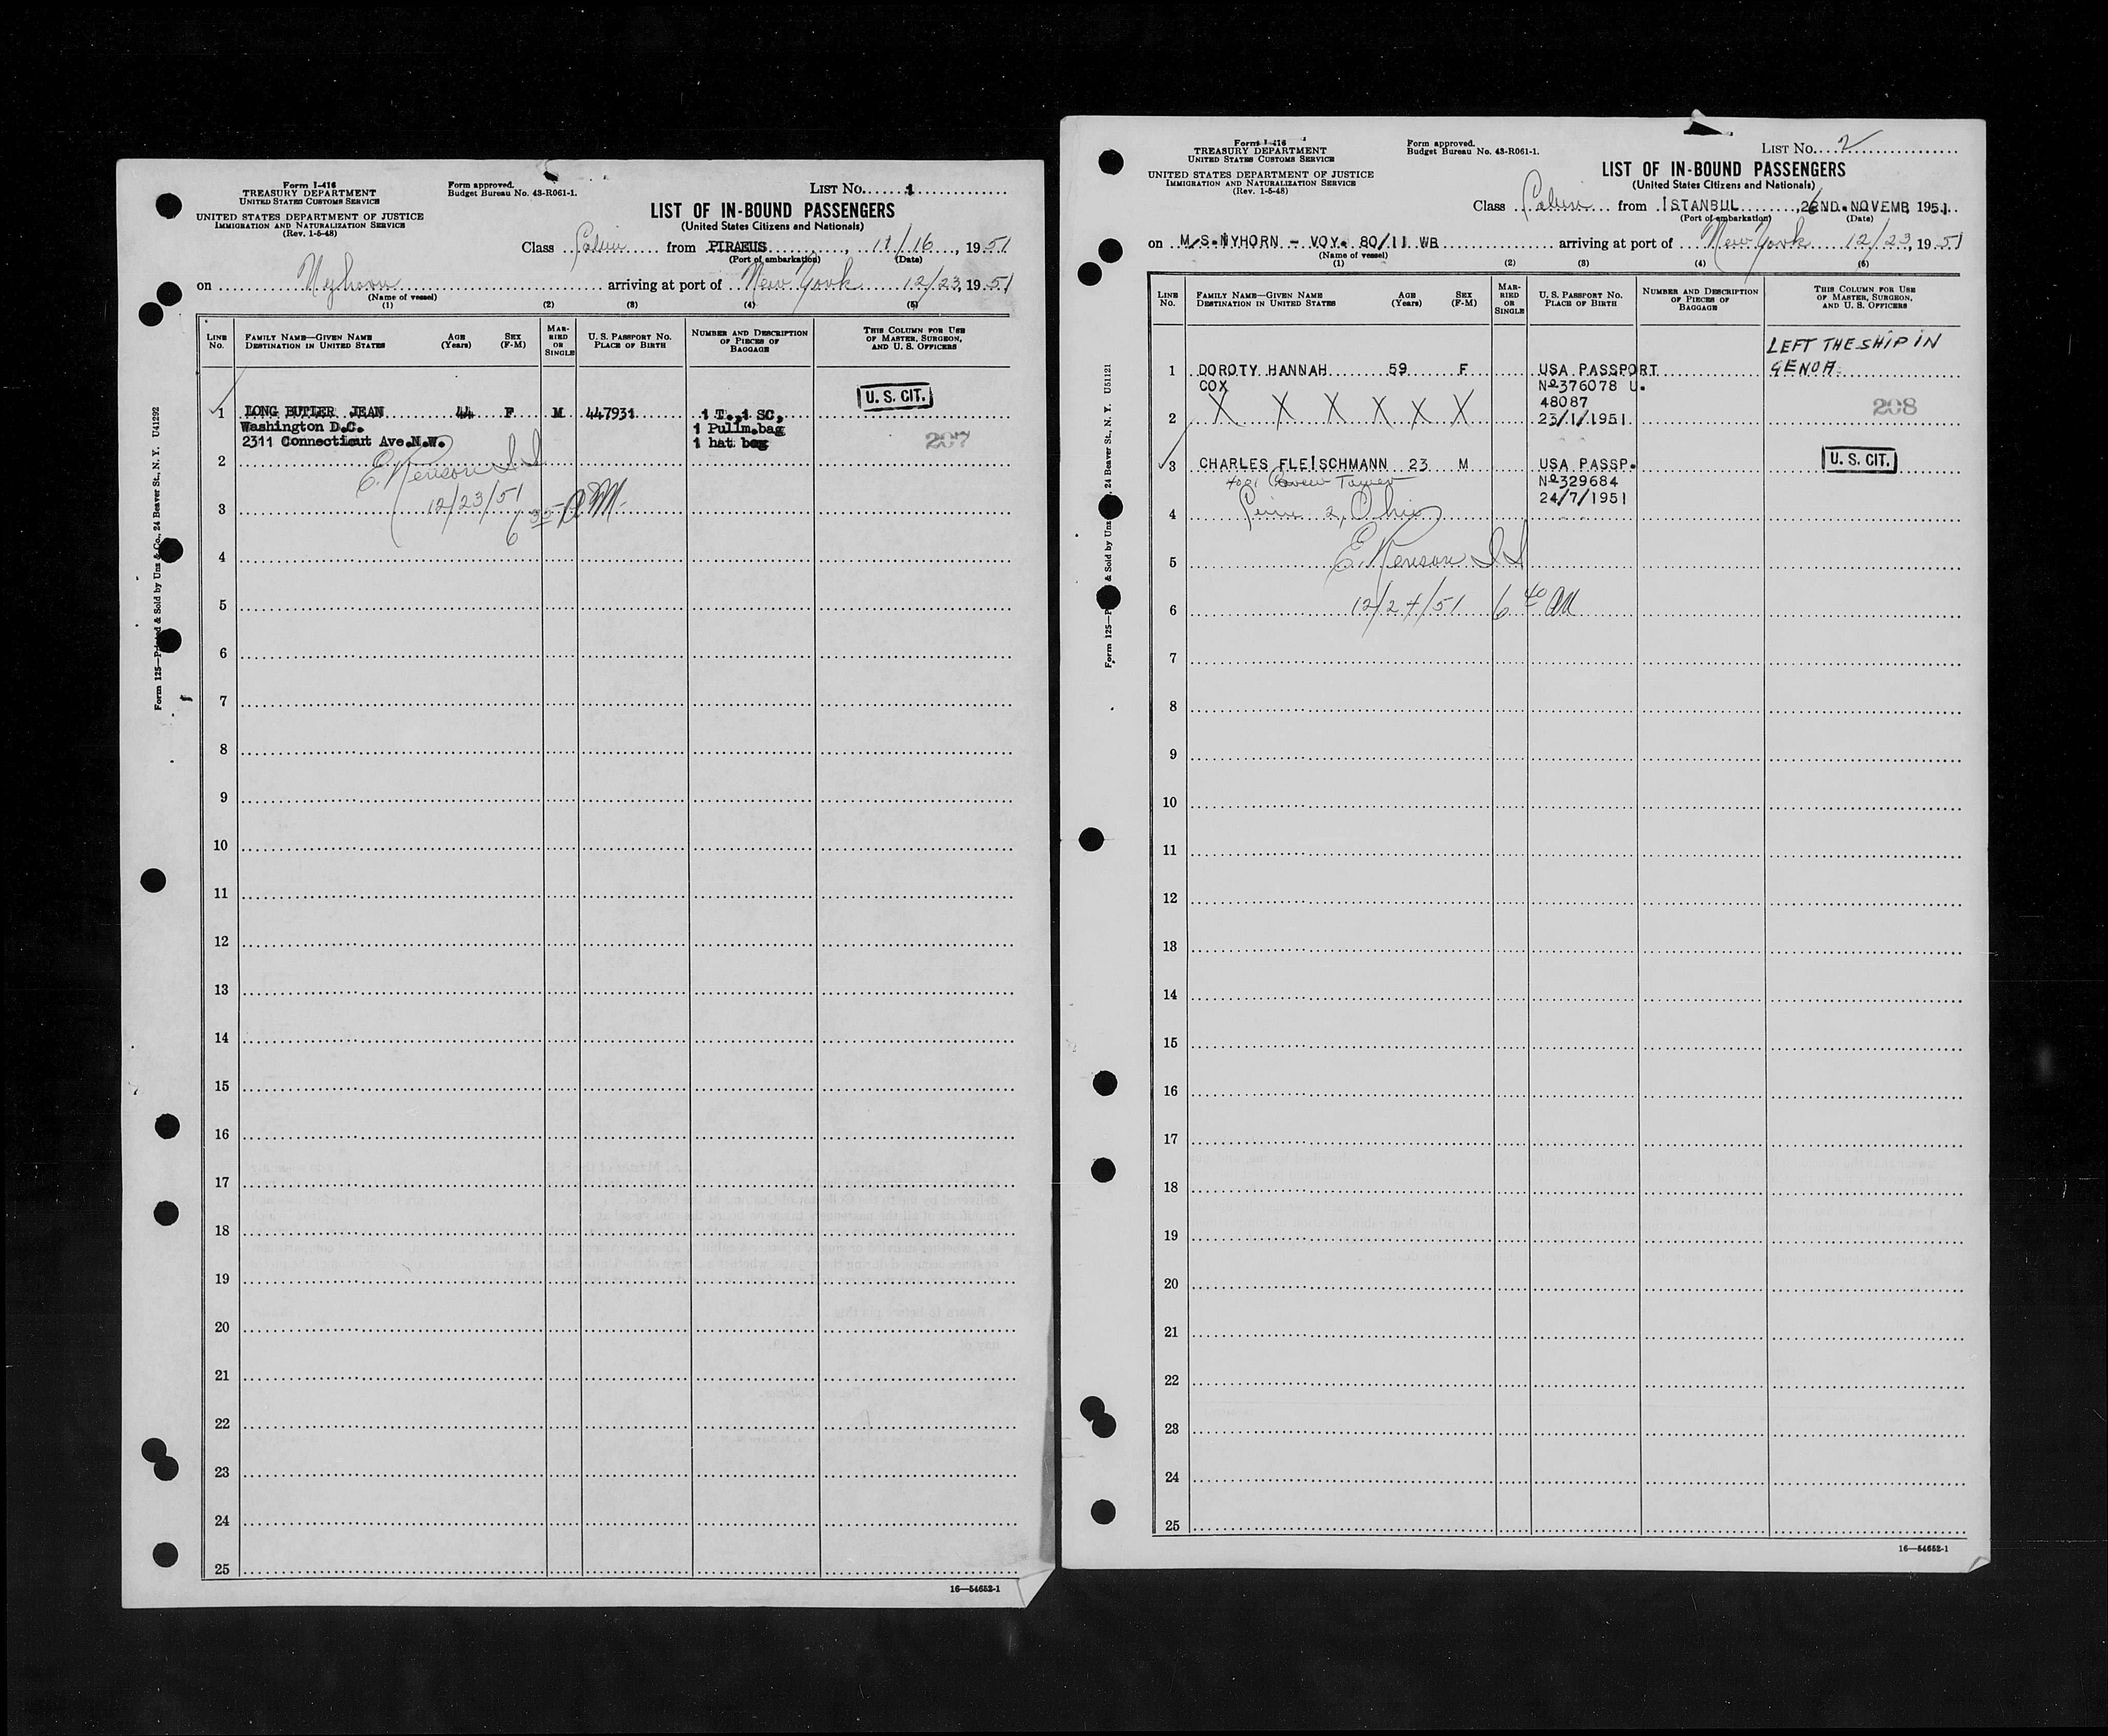 Form I-416
TREASURY DEPARTMENT
UNITED STATES CUSTOMS SERVICE
UNITED STATES DEPARTMENT OF JUSTICE
IMMIGRATION AND NATURALIZATION SERVICE
(Rev. 1-5-48)
Form approved.
Budget Bureau No. 43-R061-1.
LIST No. 1
LIST OF IN-BOUND PASSENGERS
(United States Citizens and Nationals)
Class Cabin from PIRAEUS, 11/16, 1951
(Port of embarkation) (Date)
on Nyhorn arriving at port of New York 12/23, 1951
(Name of vessel)
(1) (2) (3) (4) (5)
LINE No.
FAMILY NAME—GIVEN NAME
DESTINATION IN UNITED STATES
AGE (Years)
SEX (F-M)
MARRIED OR SINGLE
U. S. PASSPORT NO.
PLACE OF BIRTH
NUMBER AND DESCRIPTION OF PIECES OF BAGGAGE
THIS COLUMN FOR USE OF MASTER, SURGEON, AND U. S. OFFICERS
1 LONG BUTLER JEAN 44 F M 447931 1 T., 1 SC, U. S. CIT.
Washington D.C. 1 Pullm.bag
2311 Connecticut Ave.N.W. 1 hat bag 207
2
12/23/51
3 6 35 AM
4
5
6
7
8
9
10
11
12
13
14
15
16
17
18
19
20
21
22
23
24
25
16—54652-1
Form 125—Printed & Sold by Unz & Co., 24 Beaver St., N. Y. U41292
Form I-416
TREASURY DEPARTMENT
UNITED STATES CUSTOMS SERVICE
UNITED STATES DEPARTMENT OF JUSTICE
IMMIGRATION AND NATURALIZATION SERVICE
(Rev. 1-5-48)
Form approved.
Budget Bureau No. 43-R061-1.
LIST No. 2
LIST OF IN-BOUND PASSENGERS
(United States Citizens and Nationals)
Class Cabin from ISTANBUL, ND. NOVEMB 1951
(Port of embarkation) (Date)
on M/S. NYHORN - VOY. 80/11 WB arriving at port of New York 12/23, 1951
(Name of vessel)
(1) (2) (3) (4) (5)
LINE No.
FAMILY NAME—GIVEN NAME
DESTINATION IN UNITED STATES
AGE (Years)
SEX (F-M)
MARRIED OR SINGLE
U. S. PASSPORT NO.
PLACE OF BIRTH
NUMBER AND DESCRIPTION OF PIECES OF BAGGAGE
THIS COLUMN FOR USE OF MASTER, SURGEON, AND U. S. OFFICERS
LEFT THE SHIP IN
1 DOROTY HANNAH 59 F USA PASSPORT GENOA
COX Nº376078 U.
X X X X X X 48087 208
2 23/1/1951
3 CHARLES FLEISCHMANN 23 M USA PASSP. U. S. CIT.
Tower Nº329684
24/7/1951
4 2, Ohio
5
6 12/24/51 6 40 AM
7
8
9
10
11
12
13
14
15
16
17
18
19
20
21
22
23
24
25
16—54652-1
Form 125—P & Sold by Unz 24 Beaver St., N. Y. U51121